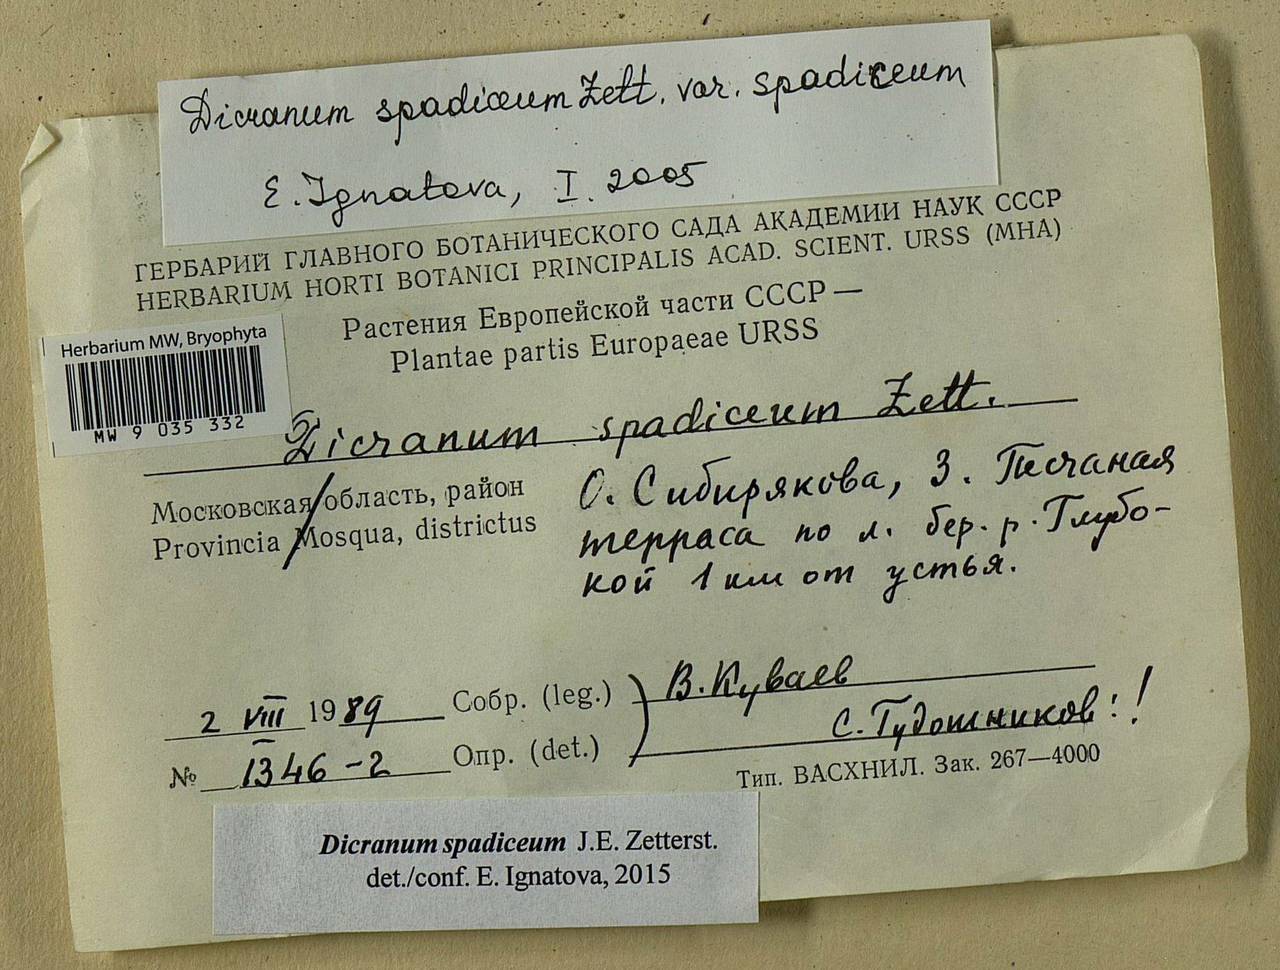 Dicranum spadiceum Zett. var. spadiceum
E. Ignatova, I. 2005
ГЕРБАРИЙ ГЛАВНОГО БОТАНИЧЕСКОГО САДА АКАДЕМИИ НАУК СССР
HERBARIUM HORTI BOTANICI PRINCIPALIS ACAD. SCIENT. URSS (MHA)
Растения Европейской части СССР —
Plantae partis Europaeae URSS
Herbarium MW, Bryophyta
MW 9 035 332
Dicranum spadiceum Zett.
Московская область, район
Provincia Mosqua, districtus
О. Сибирякова, З. Песчаная
терраса по л. бер. р. Глубо-
кой 1 км от устья.
2 VIII 1989 Собр. (leg.) В. Куваев
№ 1346-2 Опр. (det.) С. Гудошников: !
Тип. ВАСХНИЛ. Зак. 267—4000
Dicranum spadiceum J.E. Zetterst.
det./conf. E. Ignatova, 2015